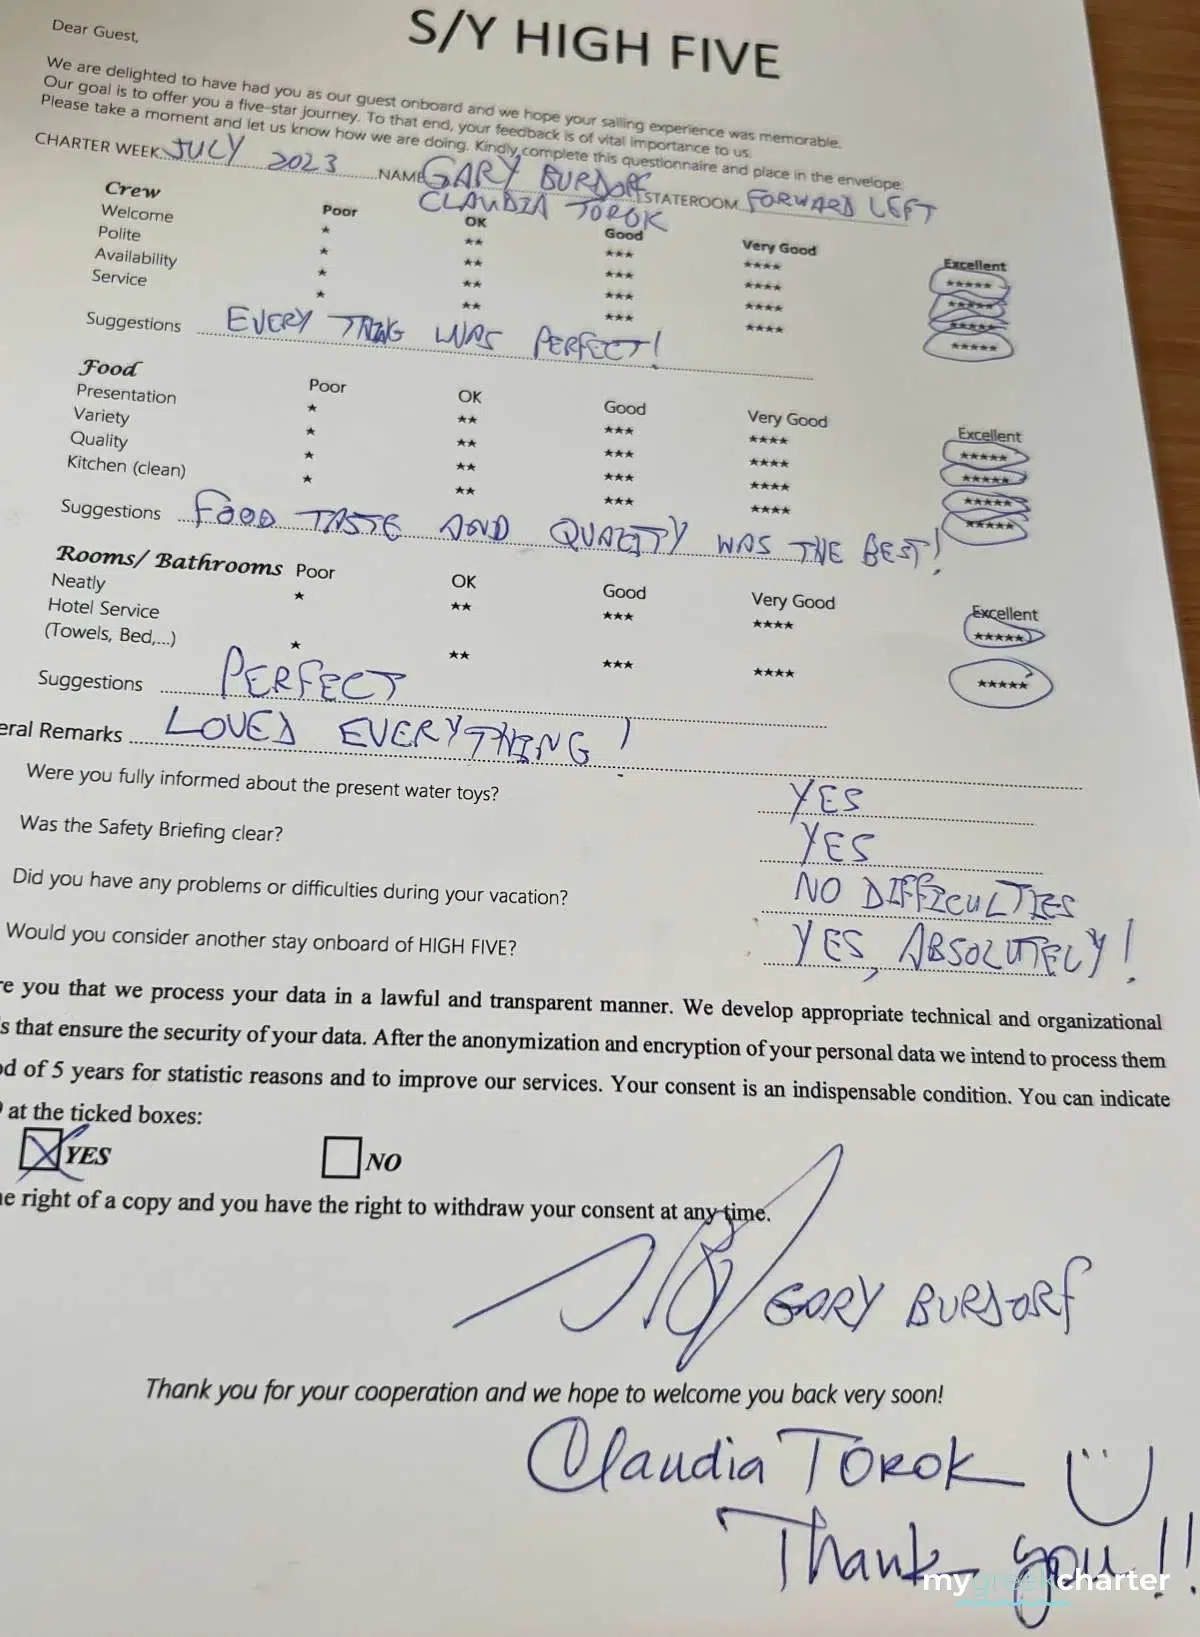 S/Y HIGH FIVE
Dear Guest,
We are delighted to have had you as our guest onboard and we hope your sailing experience was memorable.
Our goal is to offer you a five-star journey. To that end, your feedback is of vital importance to us.
Please take a moment and let us know how we are doing. Kindly complete this questionnaire and place in the envelope.
CHARTER WEEK JULY 2023 NAME GARY BURDORF STATEROOM FORWARD LEFT
CLAUDIA TOROK
Crew Poor OK Good Very Good Excellent
Welcome ★ ★★ ★★★ ★★★★ ★★★★★
Polite ★ ★★ ★★★ ★★★★ ★★★★★
Availability ★ ★★ ★★★ ★★★★ ★★★★★
Service ★ ★★ ★★★ ★★★★ ★★★★★
Suggestions EVERY THING WAS PERFECT!
Food Poor OK Good Very Good Excellent
Presentation ★ ★★ ★★★ ★★★★ ★★★★★
Variety ★ ★★ ★★★ ★★★★ ★★★★★
Quality ★ ★★ ★★★ ★★★★ ★★★★★
Kitchen (clean) ★ ★★ ★★★ ★★★★ ★★★★★
Suggestions FOOD TASTE AND QUALITY WAS THE BEST!
Rooms/ Bathrooms Poor OK Good Very Good Excellent
Neatly ★ ★★ ★★★ ★★★★ ★★★★★
Hotel Service
(Towels, Bed,...) ★ ★★ ★★★ ★★★★ ★★★★★
Suggestions PERFECT
eral Remarks LOVED EVERYTHING!
Were you fully informed about the present water toys? YES
Was the Safety Briefing clear? YES
Did you have any problems or difficulties during your vacation? NO DIFFICULTIES
Would you consider another stay onboard of HIGH FIVE? YES, ABSOLUTELY!
re you that we process your data in a lawful and transparent manner. We develop appropriate technical and organizational
s that ensure the security of your data. After the anonymization and encryption of your personal data we intend to process them
od of 5 years for statistic reasons and to improve our services. Your consent is an indispensable condition. You can indicate
at the ticked boxes:
YES NO
he right of a copy and you have the right to withdraw your consent at any time.
GARY BURDORF
Thank you for your cooperation and we hope to welcome you back very soon!
Claudia TOROK
Thank you!!
mygreekcharter